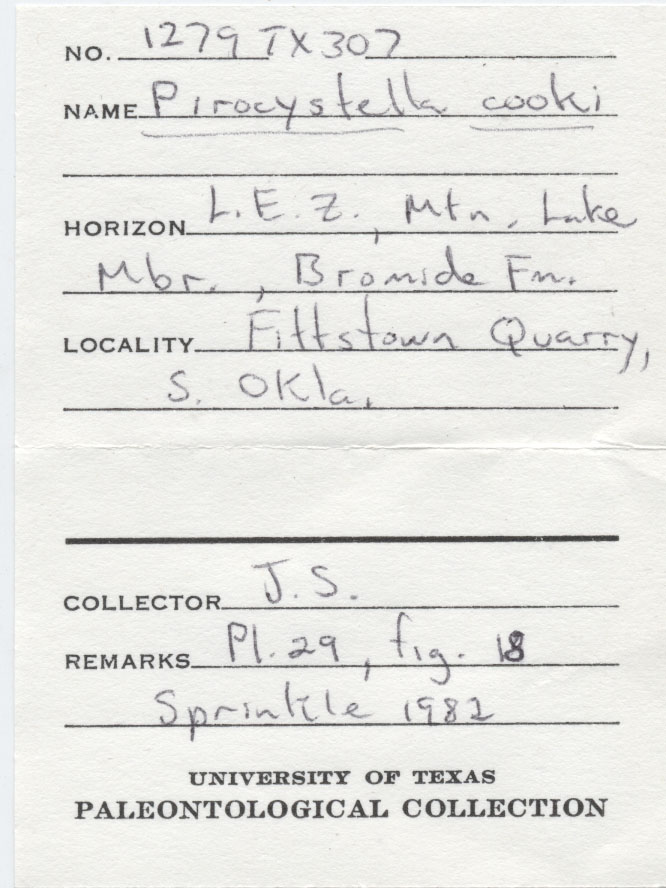 NO. 1279 TX 307
NAME Pirocystella cooki
HORIZON L.E.Z., Mtn. Lake
Mbr., Bromide Fm.
LOCALITY Fittstown Quarry,
S. Okla.
COLLECTOR J.S.
REMARKS Pl. 29, fig. 18
Sprinkle 1982
UNIVERSITY OF TEXAS
PALEONTOLOGICAL COLLECTION